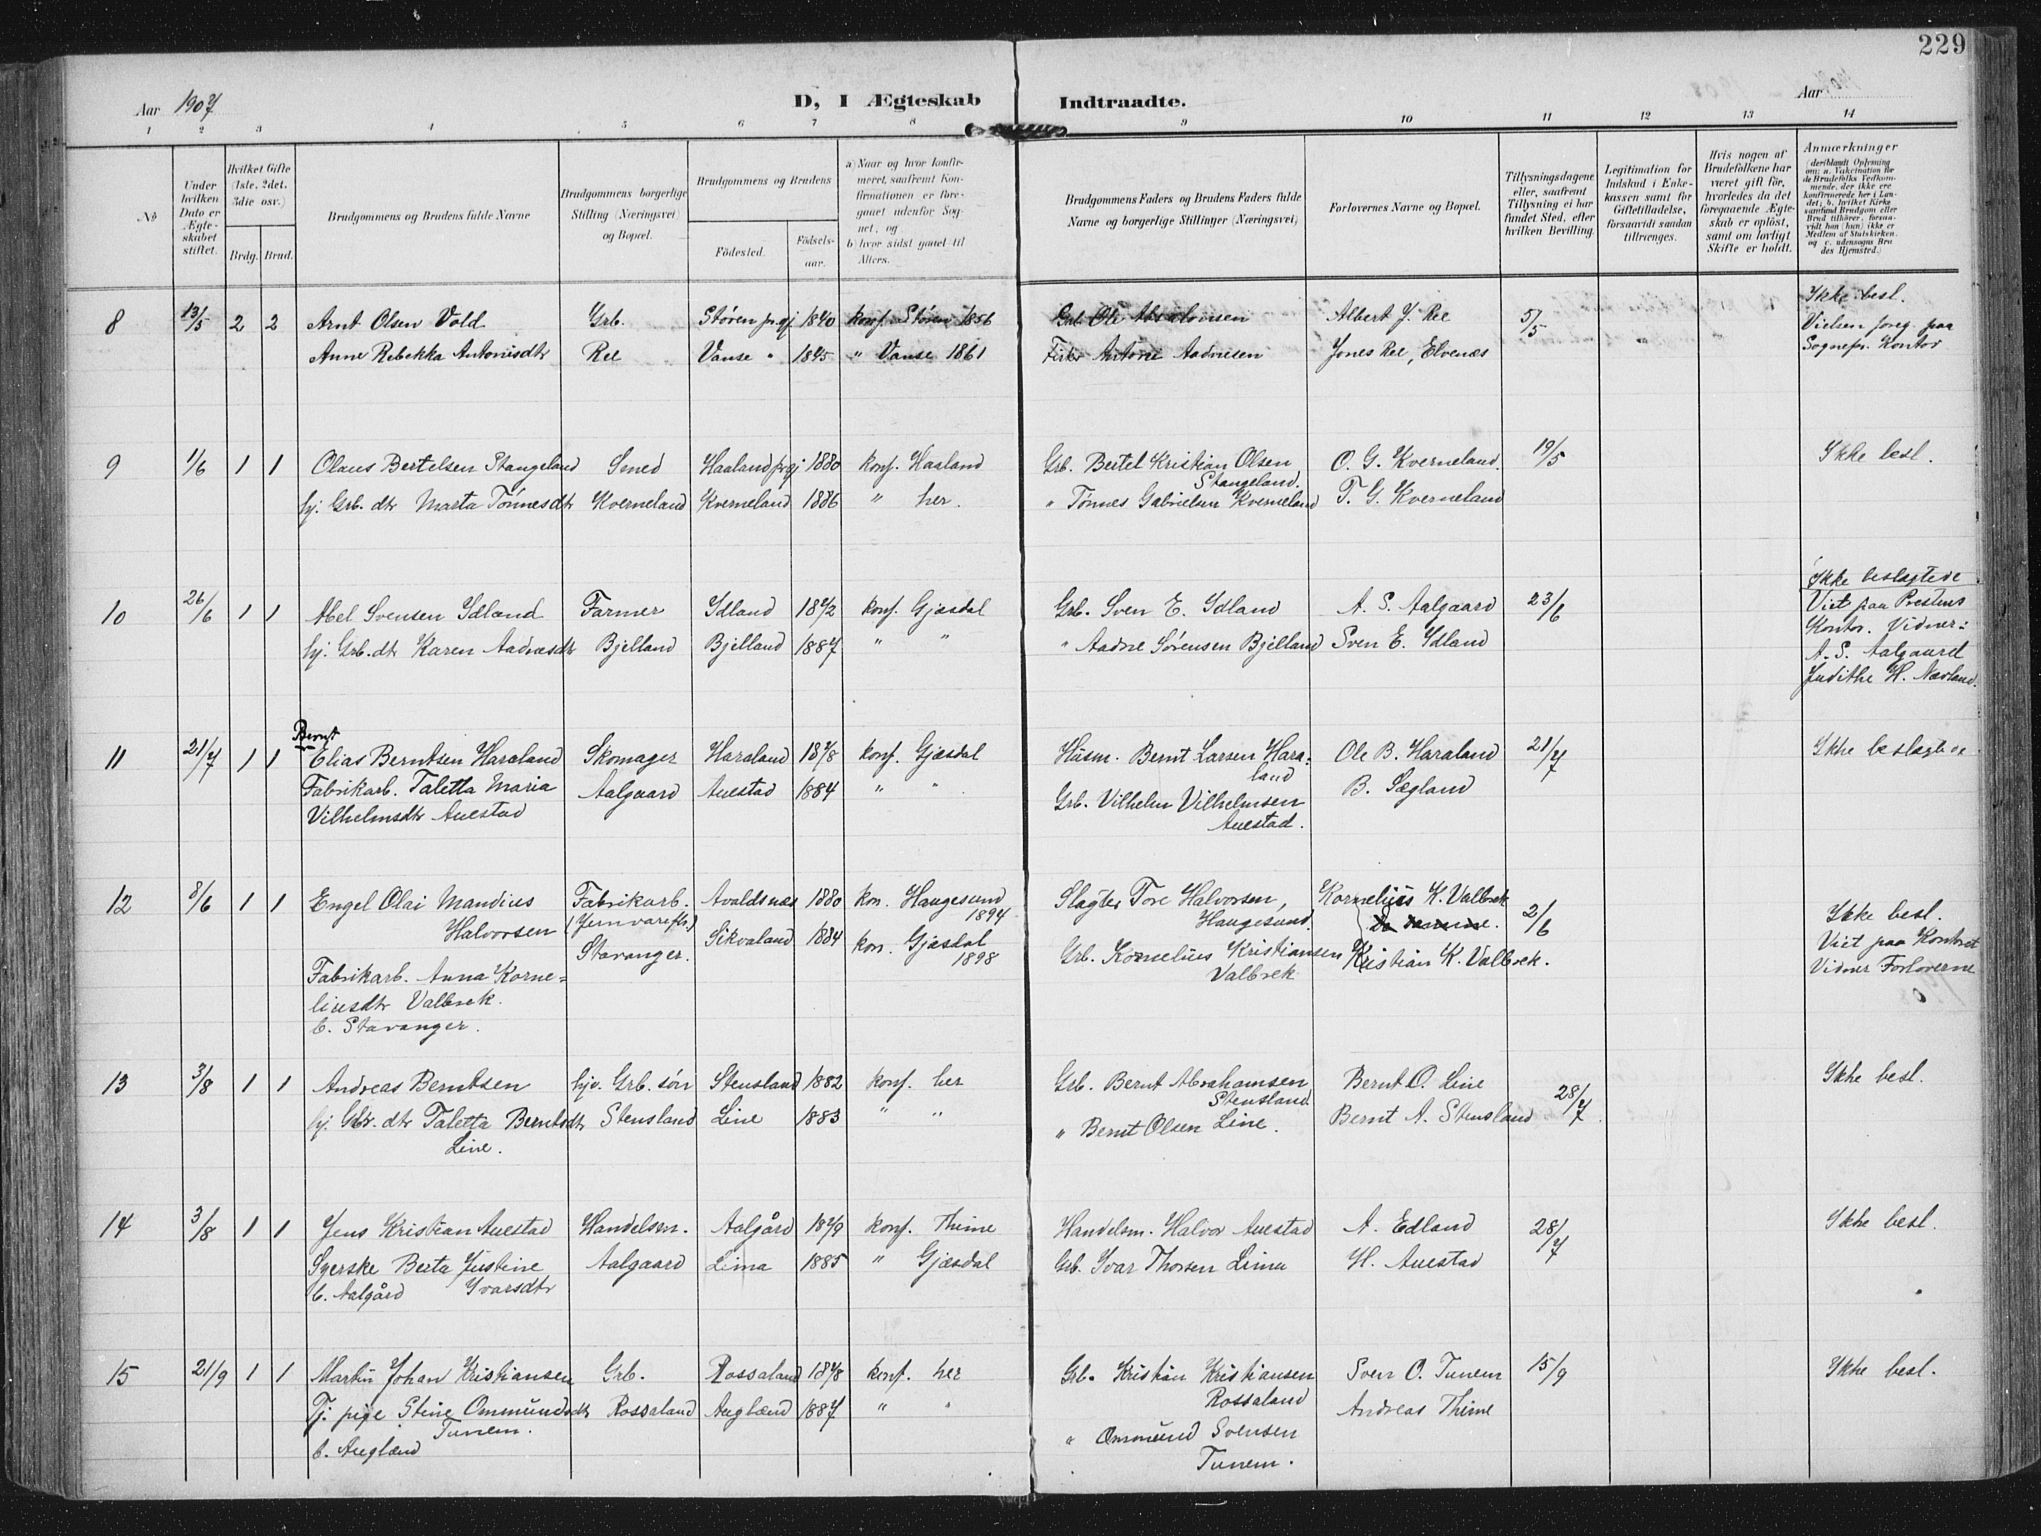 229
Aar 1907 D, I Ægteskab Indtraadte. Aar
1 2 3 4 5 6 7 8 9 10 11 12 13 14
No
Under hvilken Dato er Ægteskabet stiftet.
Hvilket Gifte (1ste, 2det, 3die osv.)
Brdg. Brud.
Brudgommens og Brudens fulde Navne
Brudgommens borgerlige Stilling (Næringsvei) og Bopæl.
Brudgommens og Brudens
Fødested. Fødselsaar.
a) Naar og hvor konfirmeret, saafremt Konfirmationen er foregaaet udenfor Sognet, og
b) hvor sidst gaaet til Alters.
Brudgommens Faders og Brudens Faders fulde Navne og borgerlige Stillinger (Næringsvei)
Forlovernes Navne og Bopæl.
Tillysningsdagene eller, saafremt Tillysning ei har fundet Sted, efter hvilken Bevilling.
Legitimation for Indskud i Enkekassen samt for Giftetilladelse, forsaavidt saadan tiltrænges.
Hvis nogen af Brudefolkene har været gift før, hvorledes da det foregaaende Ægteskab er opløst, samt om lovligt Skifte er holdt.
Anmærkninger
(deriblandt Oplysning om: a. Vakcination for de Brudefolks Vedkommende, der ikke ere konfirmerede her i Landet; b. hvilket Kirkesamfund Brudgom eller Brud tilhører, forsaavidt han (hun) ikke er Medlem af Statskirken, og c. udensogns Brudes Hjemsted.)
8 13/5 2 2 Arnt Olsen Vold Grb. Støren prgj 1840 konf. Støren 1856 Grb. Ole Albert J. Ree 5/5 Ikke besl.
Anne Rebekka Antonisdtr Ree Vanse " 1845 " Vanse 1861 Jones Ree, Elvenæs Vielsen foreg. paa
Sognepr. Kontor
9 1/6 1 1 Olaus Bertelsen Stangeland Smed Haaland prgj 1880 konf. Haaland Grb. Bertel Kristian Olsen O. G. Kverneland. 19/5 Ikke besl.
Stangeland.
hj. Grb. dtr Marta Tønnesdtr Kverneland Kverneland 1886 " her. " Tønnes Gabrielsen Kverneland T. G. Kverneland
10 26/6 1 1 Abel Svensen Idland Farmer Idland 1872 konf. Gjæsdal Grb. Sven E. Idland A. S. Aalgaard 23/6 Ikke beslagtede
Viet paa Prestens
hj. Grb. dtr Karen Aadnesdtr Bjelland Bjelland 1887 " " " Aadne Sørensen Bjelland Sven E. Idland Kontor. Vidner:
A. S. Aalgaard
Judithe H. Nærland.
Bernt
11 21/7 1 1 Elias Berntsen Haraland Skomager Haraland 1878 konf. Gjæsdal Husm. Bernt Larsen Hara- Ole B. Haraland 21/7 Ikke beslagtede
land
Fabrikarb. Taletta Maria Aalgaard Auestad 1884 " " Grb. Vilhelm Vilhelmsen B. Sægland
Vilhelmsdtr Auestad Auestad.
12 8/6 1 1 Engel Olai Mandius Fabrikarb. Avaldsnæs 1880 kon. Haugesund Slagter Tore Halvorsen, Kornelius K. Valbrek 2/6 Ikke besl.
Halvorsen (Jernvarefbr.) 1894 Haugesund.
Stavanger. Sikvaland 1884 kon. Gjæsdal Grb. Kornelius Kristiansen Kristian K. Valbrek. Viet paa Kontoret
1898 Valbrek Vidner Forloverne
Fabrikarb. Anna Korne-
liusdtr Valbrek.
b. Stavanger.
13 3/8 1 1 Andreas Berntsen hjv. Grb. søn Stensland 1882 konf. her Grb. Bernt Abrahamsen Bernt O. Line 28/7 Ikke besl.
Stensland
hj. Gbr. dtr Taletta Berntsdtr Stensland Line 1883 " " " Bernt Olsen Line. Bernt A. Stensland
Line.
14 3/8 1 1 Jens Kristian Auestad Handelsm. Aalgård 1879 konf. Thime Handelsm. Halvor Auestad A. Edland 28/7 Ikke besl.
Syerske Berta Justine Aalgaard Lima 1885 " Gjæsdal Grb. Ivar Thorsen Lima H. Auestad
b. Aalgård Ivarsdtr
15 21/9 1 1 Martin Johan Kristiansen Grb. Rossaland 1878 konf. her Grb. Kristian Kristiansen Sven O. Tunem 15/9 Ikke besl.
Rossaland
Tj. pige Stine Ommundsdtr Rossaland Auglænd 1887 " " " Ommund Svensen Andreas Thime
b. Auglænd Tunem. Tunem.